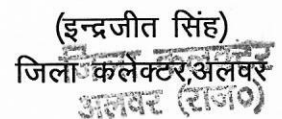 (इन्द्रजीत सिंह)
जिला कलेक्टर,अलवर
जिला कलेक्टर
अलवर (राज०)